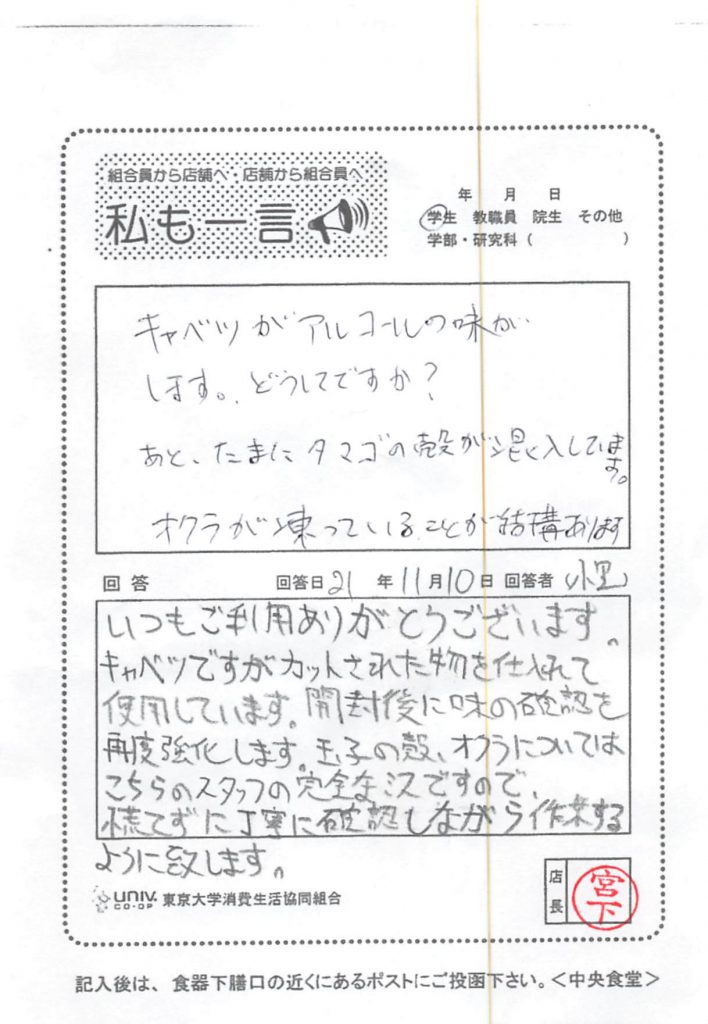 組合員から店舗へ・店舗から組合員へ
私も一言
年 月 日
学生 教職員 院生 その他
学部・研究科( )
キャベツがアルコールの味が
します。どうしてですか?
あと、たまにタマゴの殻が混入しています。
オクラが凍っていることが結構あります
回答 回答日 21 年 11 月 10 日 回答者 小里
いつもご利用ありがとうございます。
キャベツですがカットされた物を仕入れて
使用しています。開封後に味の確認を
再度強化します。玉子の殻、オクラについては
こちらのスタッフの完全なミスですので、
慌てずに丁寧に確認しながら作業する
ように致します。
UNIV. CO-OP 東京大学消費生活協同組合
店長 宮下
記入後は、食器下膳口の近くにあるポストにご投函下さい。<中央食堂>